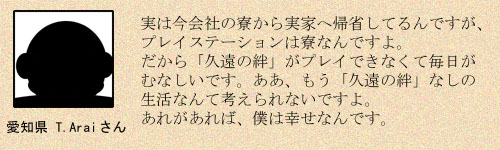 実は今会社の寮から実家へ帰省してるんですが、
プレイステーションは寮なんですよ。
だから「久遠の絆」がプレイできなくて毎日が
むなしいです。ああ、もう「久遠の絆」なしの
生活なんて考えられないですよ。
あれがあれば、僕は幸せなんです。
愛知県 T.Araiさん